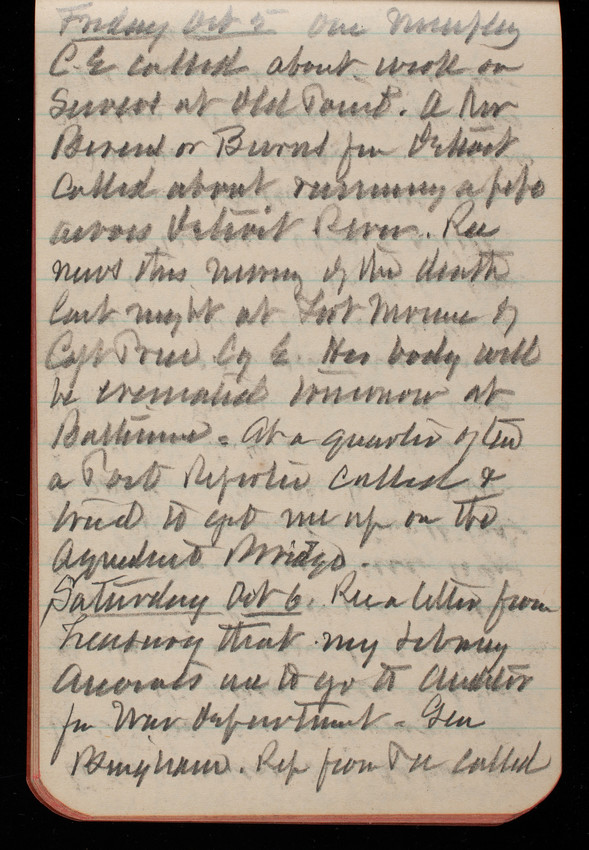 Friday Oct 5 One
C.E called about work on
Sewers at Old Point. A Mr
or Burns from Detroit
Called about running a pipe
across Detroit River. Rec
news this morning of the death
last night at Fort Monroe of
Capt Price C of E. His body will
be cremated tomorrow at
Baltimore. At a quarter of ten
a Post Reporter called &
tried to get me up on the
Aqueduct Bridge.
Saturday Oct 6. Rec a letter from
Treasury that my
Accounts are to go to Auditor
for War Department - Gen
Bingham. Rep from called